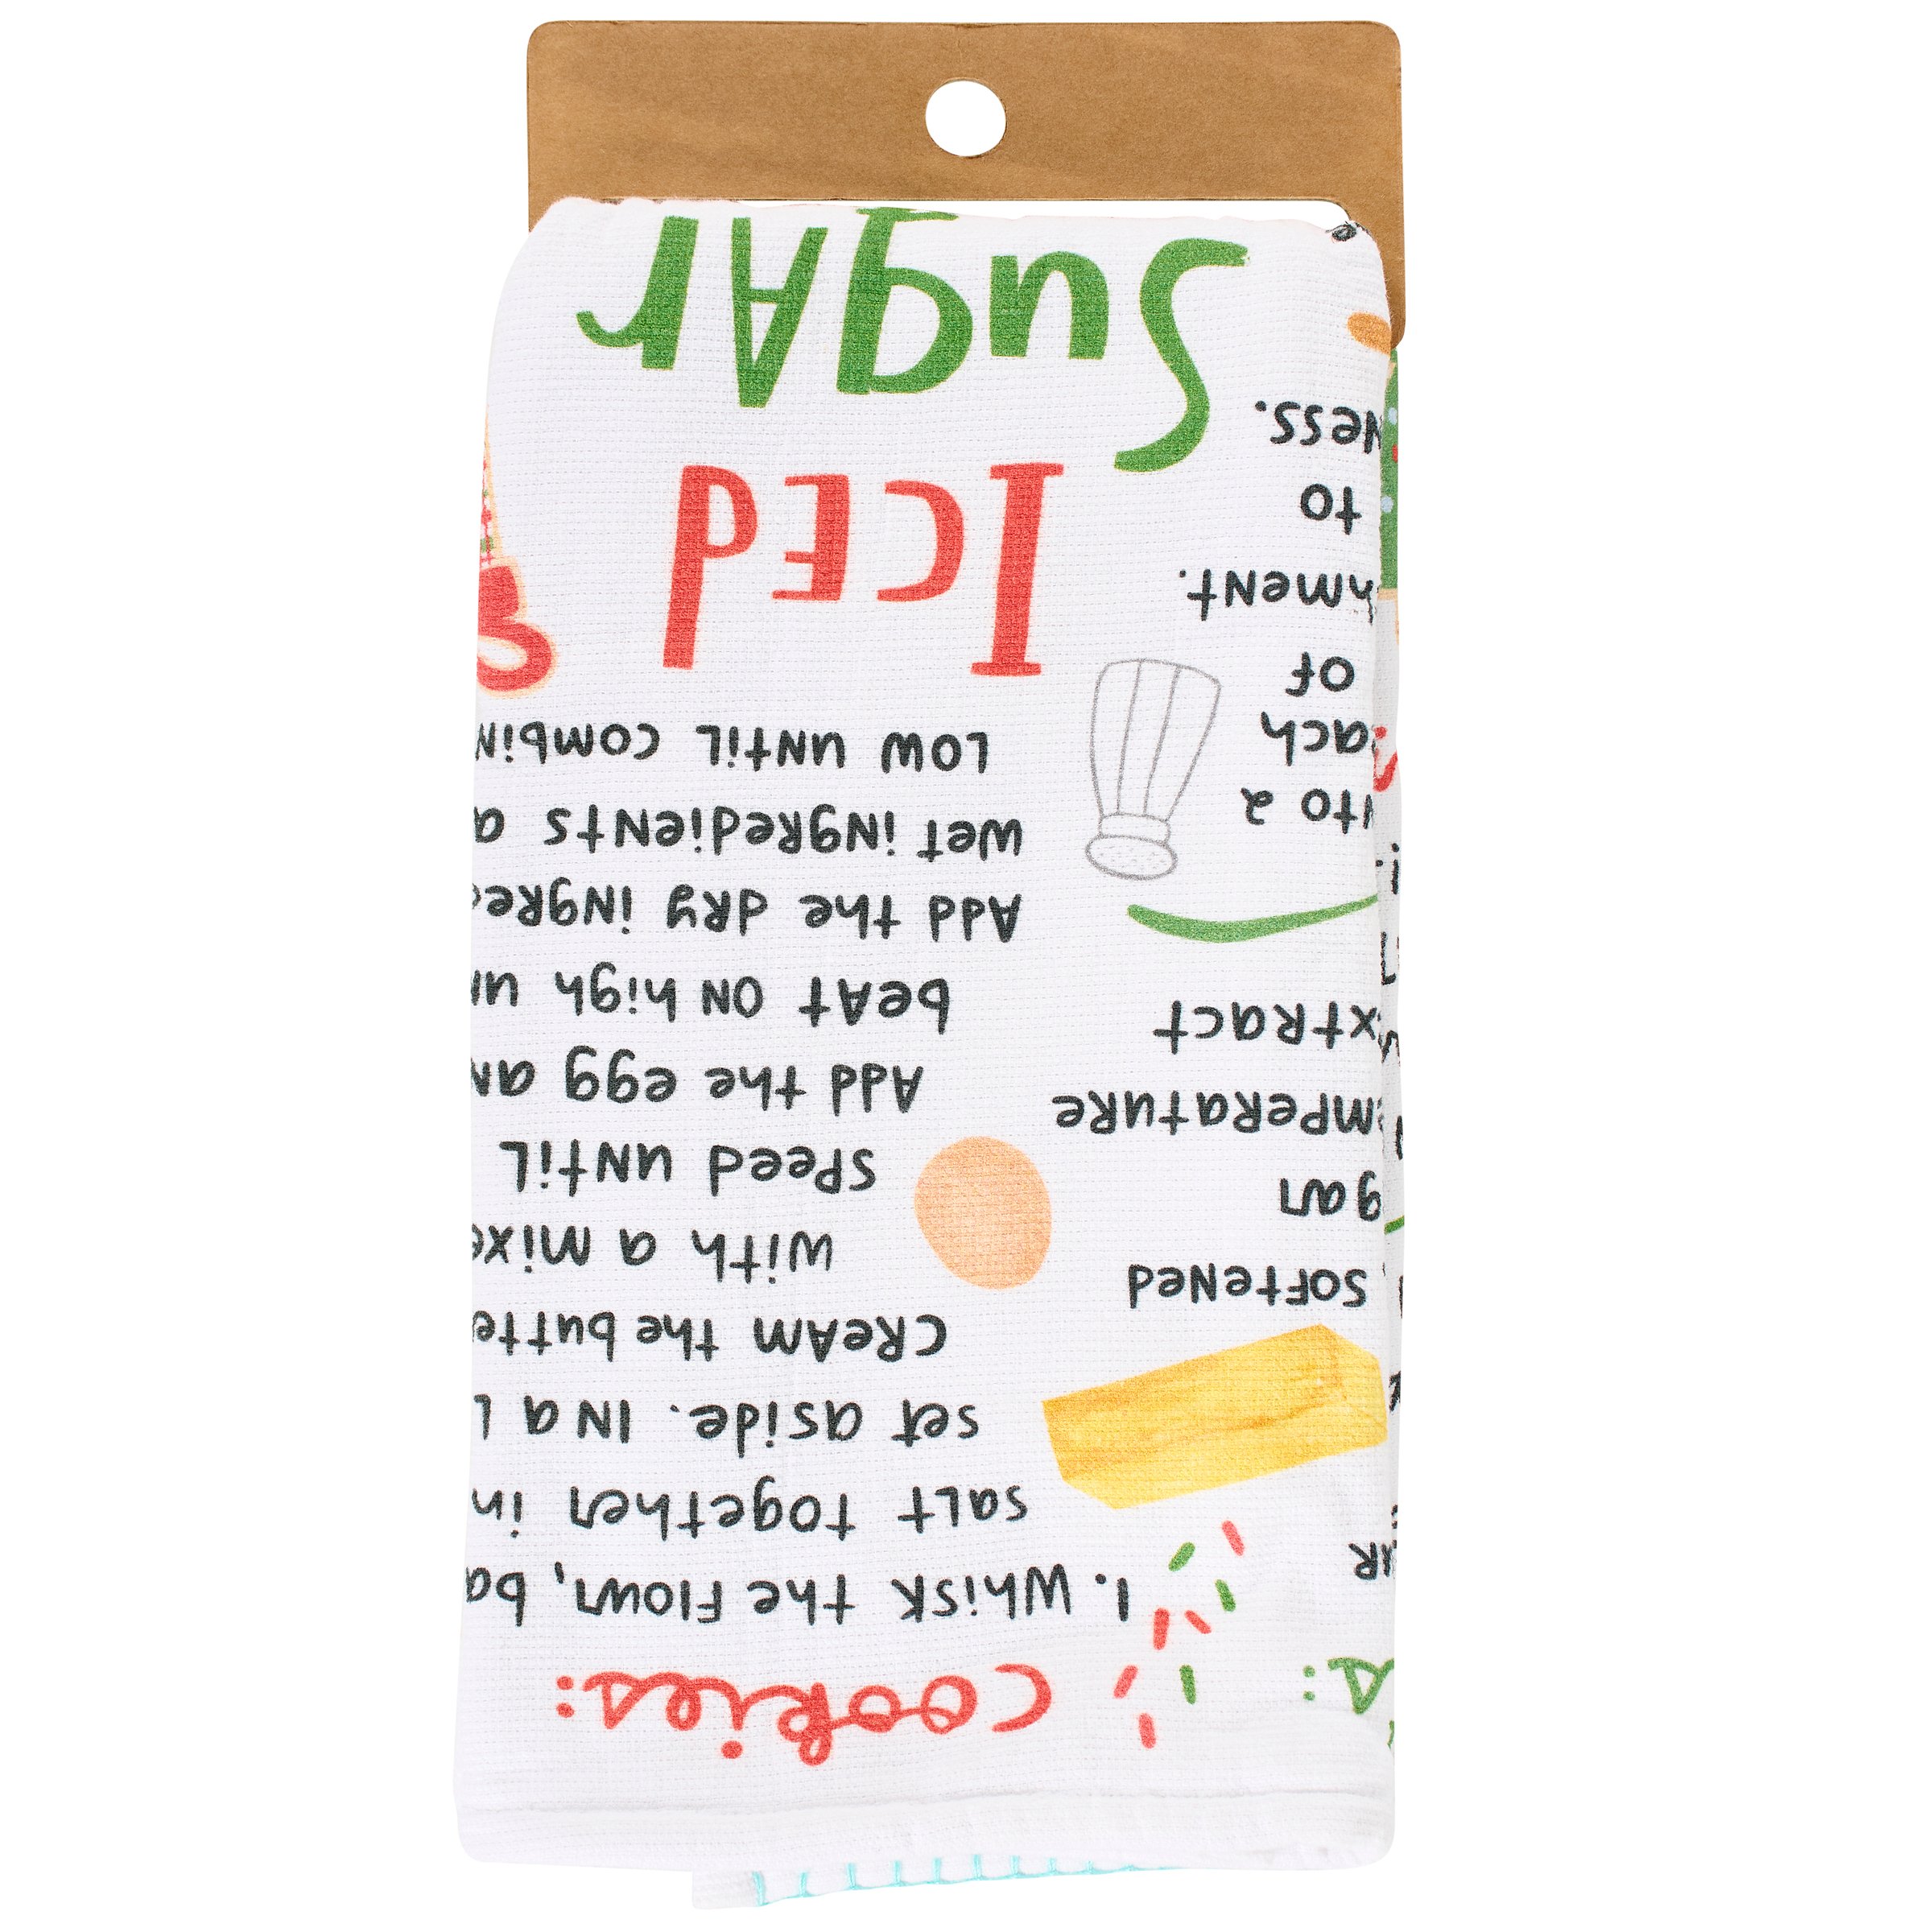 cookies:
1. Whisk the flour, ba
salt together in
set aside. In a l
cream the butte
with a mixe
speed until
Add the egg an
beat on high un
Add the dry ingre
wet ingredients a
low until combin
Iced
Sugar
s:
softened
g an
mperature
xtract
to 2
ach
of
hment.
to
ness.